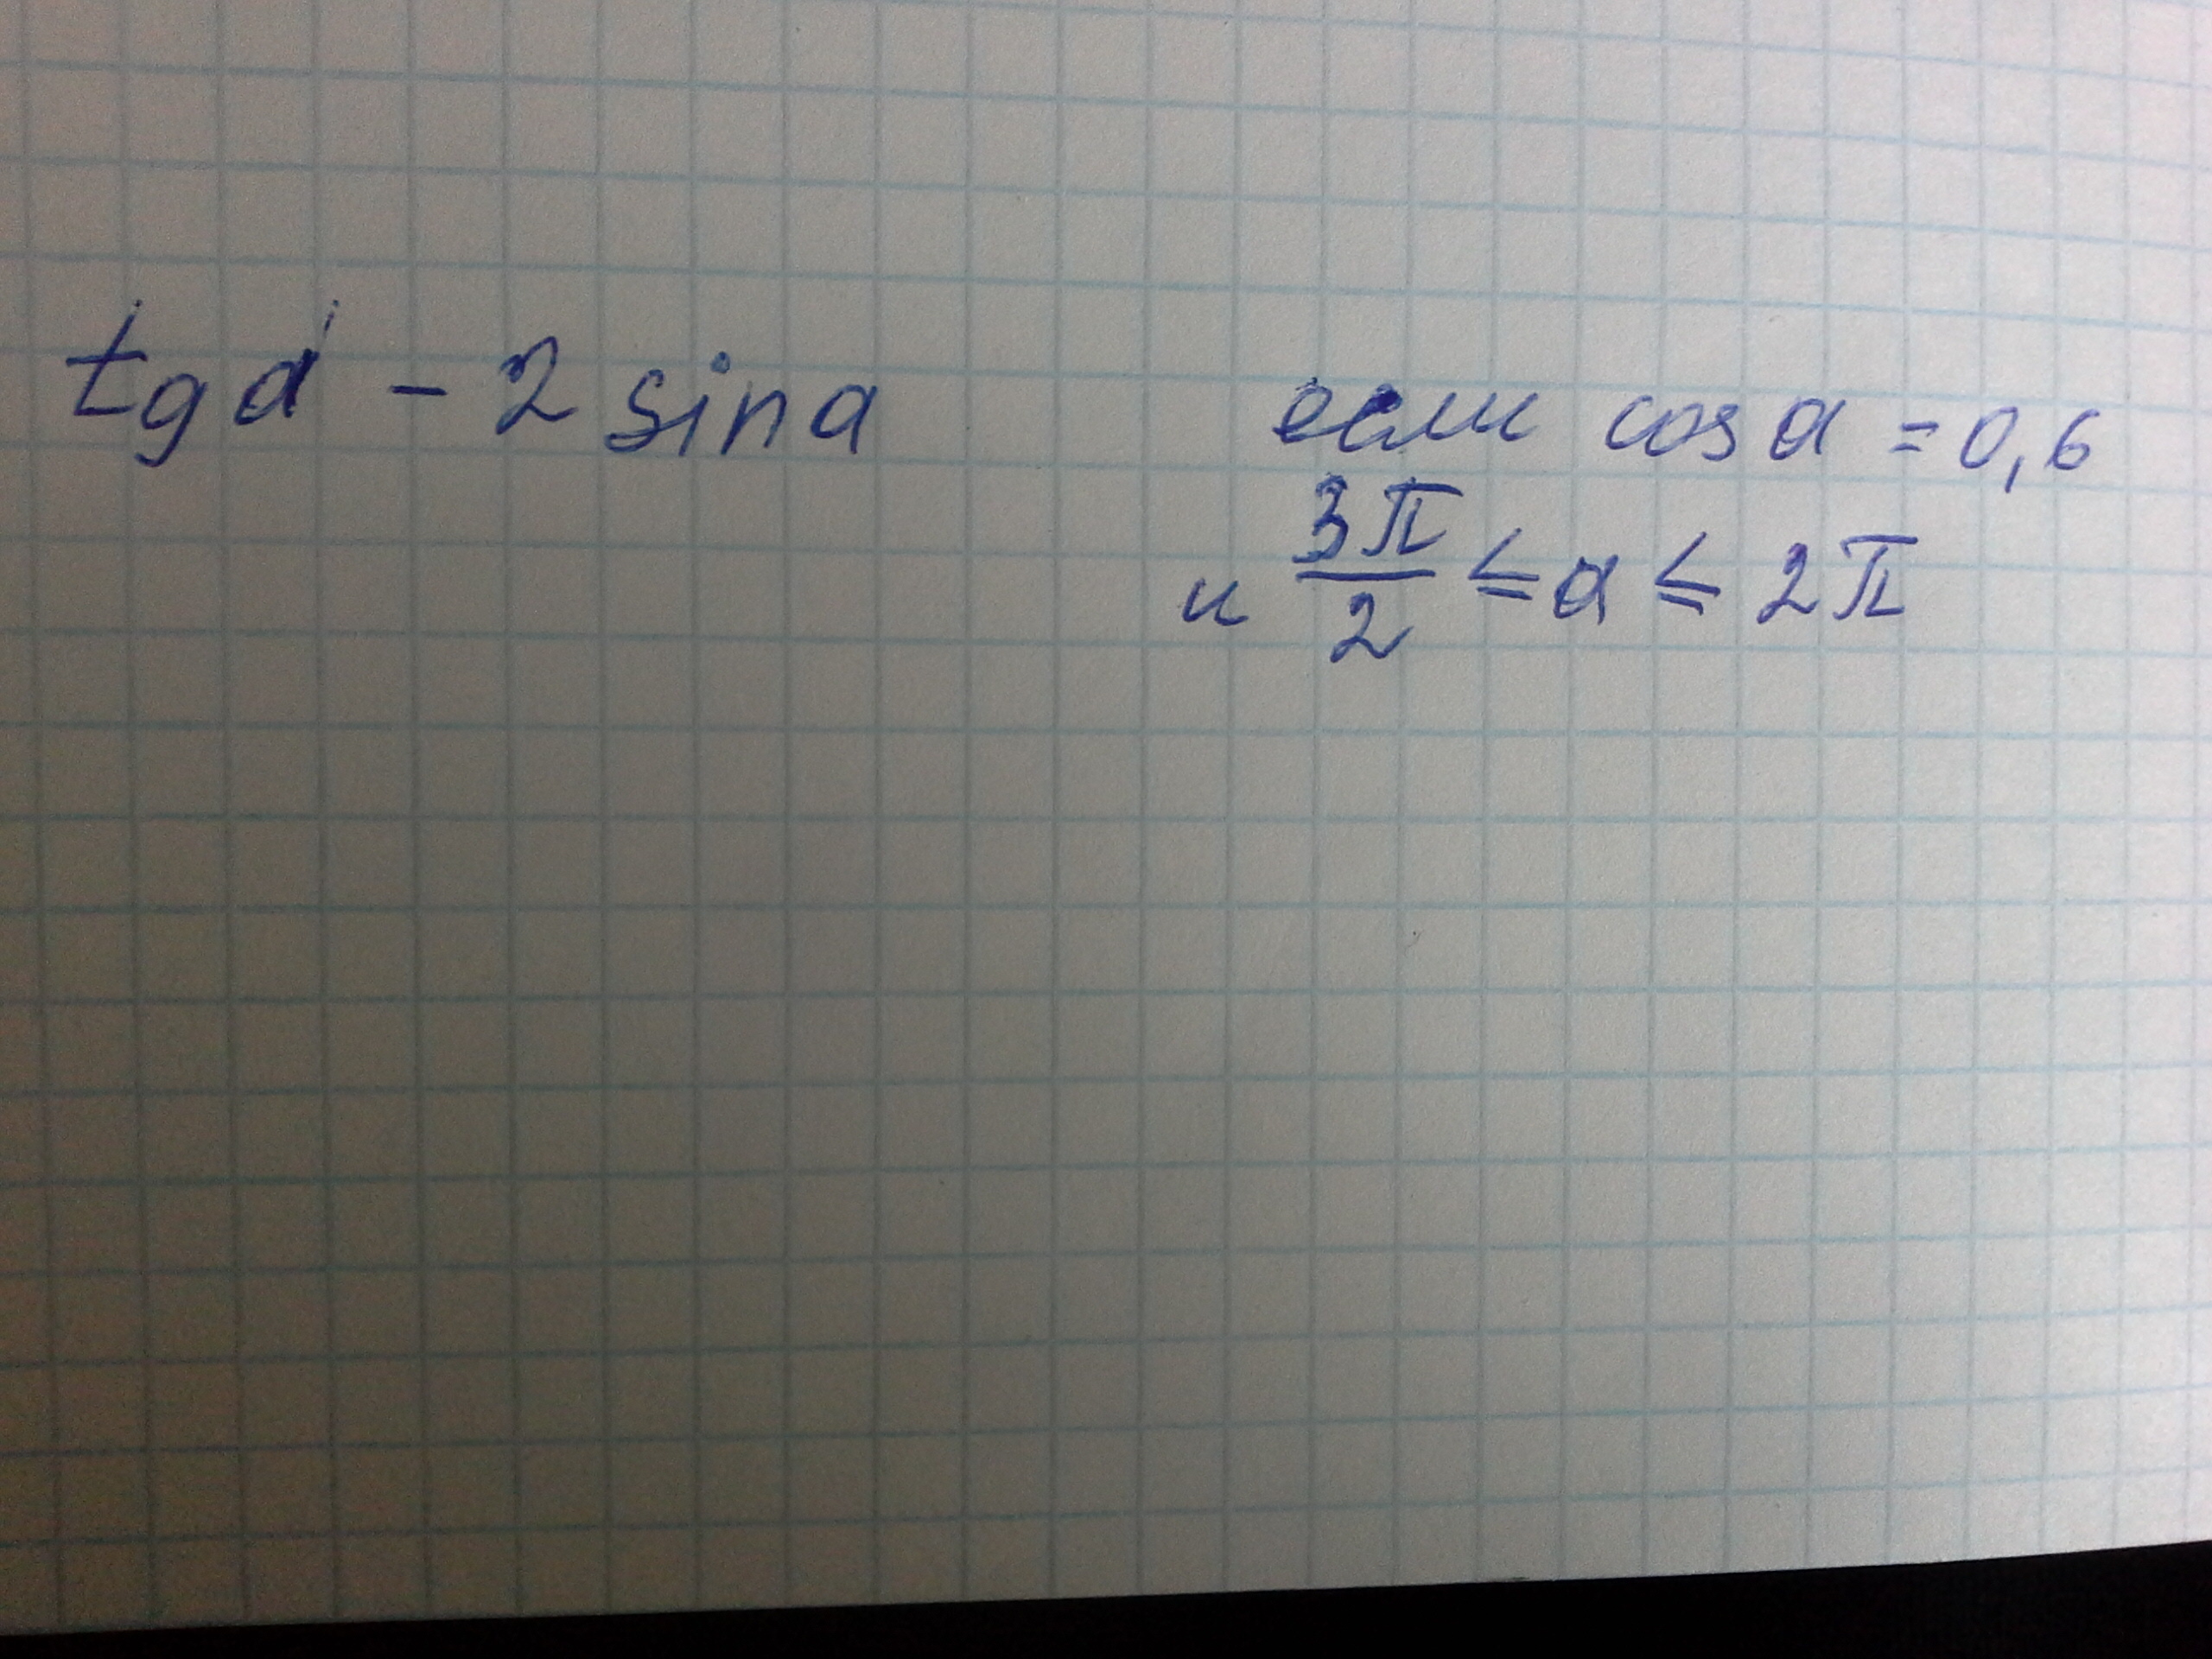 tg α - 2 sin α если cos α = 0,6
и 3π/2 ≤ α ≤ 2π